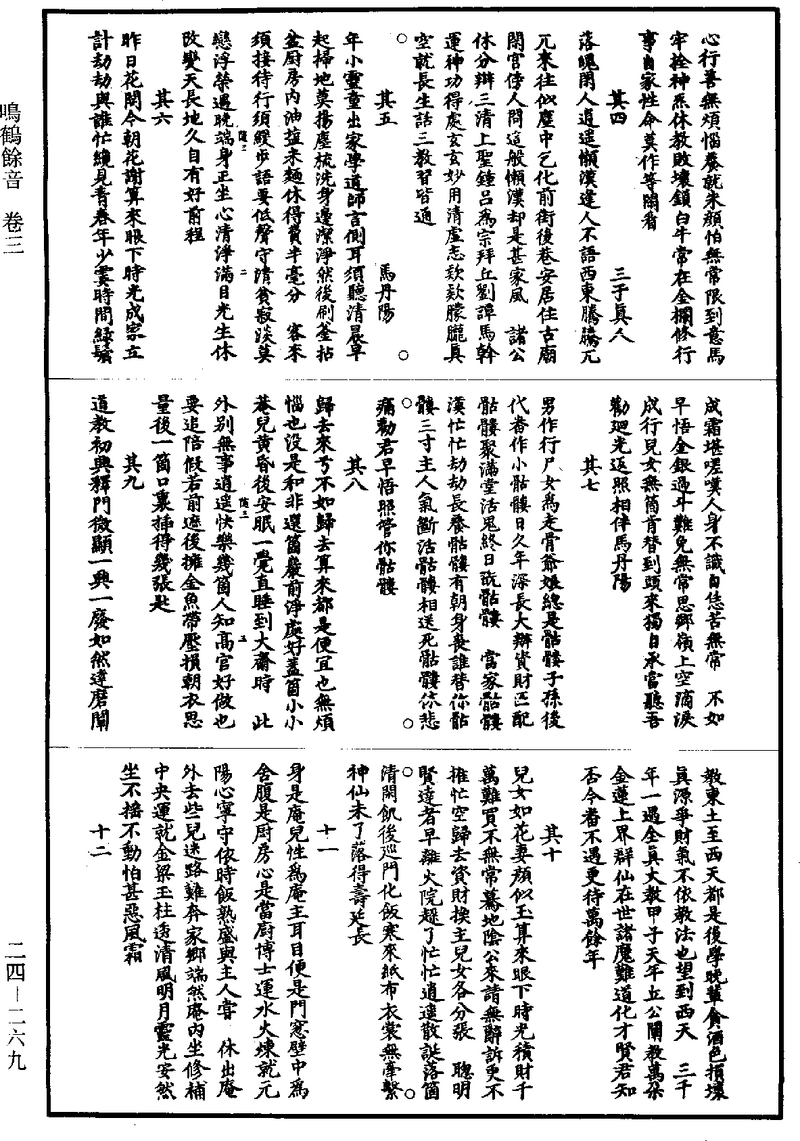 心行善無煩惱養就朱顔怕無常限到意馬
牢拴神炁休教敗壞鎖白牛常在金欄修行
事自家性命莫作等閑看
其四　三于真人
落魄閑人逍遥懶漢逢人不語西東騰騰兀
兀來往似塵中乞化前街後巷安居住古廟
閑宫傍人問這般懶漢却是甚家風　諸公
休分辯三清上聖鍾吕爲宗拜丘劉譚馬幹
運神功得處玄玄妙用清虚志款款朦朧真
空就長生話三教習皆通
○　其五　馬丹陽　○
年小靈童出家學道師言側耳須聽清晨早
起掃地莫揚塵梳洗身邊潔淨然後刷釜拈
盆厨房内油鹽米麵休得費半毫分　客來
須接待行須緩步語要低聲守清貧寂淡莫
隨三　二
戀浮榮過晚端身正坐心清淨滿目光生休
改變天長地久自有好前程
其六
昨日花開今朝花謝算來眼下時光成家立
計劫劫與誰忙纔見青春年少霎時間緑鬢
成霜堪嗟嘆人身不識自恁苦無常　不如
早悟金銀過斗難免無常思鄉嶺上空滴淚
成行兒女無箇肯替到頭來獨自承當聽吾
勸廻光返照相伴馬丹陽
其七
男作行尸女爲走骨爺娘總是骷髏子孫後
代番作小骷髏日久年深長大辦資財匹配
骷髏聚滿堂活鬼終日玩骷髏　當家骷髏
漢忙忙劫劫長養骷髏有朝身喪誰替你骷
髏三寸主人氣斷活骷髏相送死骷髏休悲
○　○
痛勸君早悟照管你骷髏
其八
歸去來兮不如歸去算來都是便宜也無煩
惱也没是和非選箇巖前淨處好蓋箇小小
菴兒黄昏後安眠一覺直睡到大齋時　此
隨三　三
外别無事逍遥快樂幾箇人知高官好做也
要追陪假若前遮後擁金魚帶壓損朝衣思
量後一箇口裏插得幾張匙
其九
道教初興釋門微顯一興一廢如然達磨闡
教東土至西天都是後學晚輩貪酒色損壞
真源爭財氣不依教法也望到西天　三千
年一遇全真大教甲子天年丘公闡教萬朵
金蓮上界群仙在世諸魔難道化才賢君知
否今番不遇更待萬餘年
其十
兒女如花妻顔似玉算來眼下時光積財千
萬難買不無常驀地陰公來請無辭訴更不
推忙空歸去資財換主兒女各分張　聰明
賢達者早離火院趓了忙忙逍遥散誕落箇
○　○
清閑飢後巡門化飯寒來紙布衣裳無牽繫
神仙未了落得壽延長
十一
身是庵兒性爲庵主耳目便是門窓壁中爲
舍腹是厨房心是當厨博士運水火煉就元
陽心寧守依時飯熟盛與主人嘗　休出庵
外去些兒迷路難奔家鄉端然庵内坐修補
中央運就金梁玉柱透清風明月靈光安然
坐不摇不動怕甚惡風霜
十二
鳴鶴餘音　卷三
二四—二六九